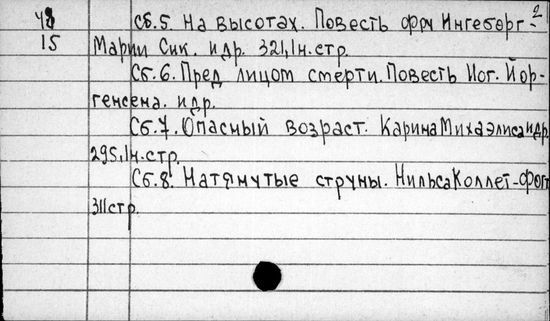 2
48 Сб. 5. На высотах. Повесть фру Ингеборг-
15 Марии Сик. и др. 321, 1н. стр.
Сб. 6. Пред лицом смерти. Повесть Иог. Йор-
генсена. и др.
Сб. 7. Опасный возраст. Карина Михаэлиса и др.
295, 1н. стр.
Сб. 8. Натянутые струны. Нильса Коллет-Фогт
311 стр.